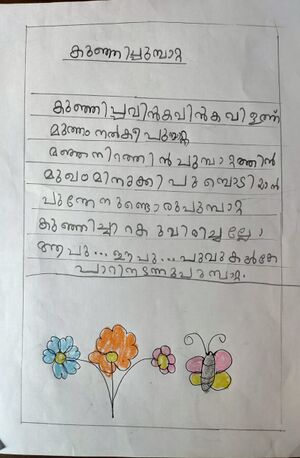 കുഞ്ഞിപൂമ്പാറ്റ
കുഞ്ഞിപ്പൂവിൻകവിൻക വിളത്ത്
മുത്തം നൽകീ പൂമ്പാറ്റ
മഞ്ഞനിറത്തിൻ പൂമ്പാറ്റത്തിൻ
മുഖം മിനുക്കി പൂമ്പൊടിയാൽ
പുന്നേനുണ്ടൊരുപൂമ്പാറ്റ
കുഞ്ഞിച്ചിറകുവിരിച്ചല്ലോ
ആ പൂ... ഈ പൂ... പൂവുകൾതേ
പാറിനടന്നുപൂമ്പാറ്റ.